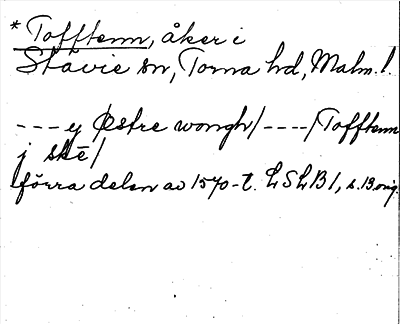 *Tofftenn, åker i
Stävie sn, Torna hd, Malm. l.
---y Østre wongh/----/Tofftenn
j skē/
förra delen av 1570-t. LSLB1, s. 13 orig.